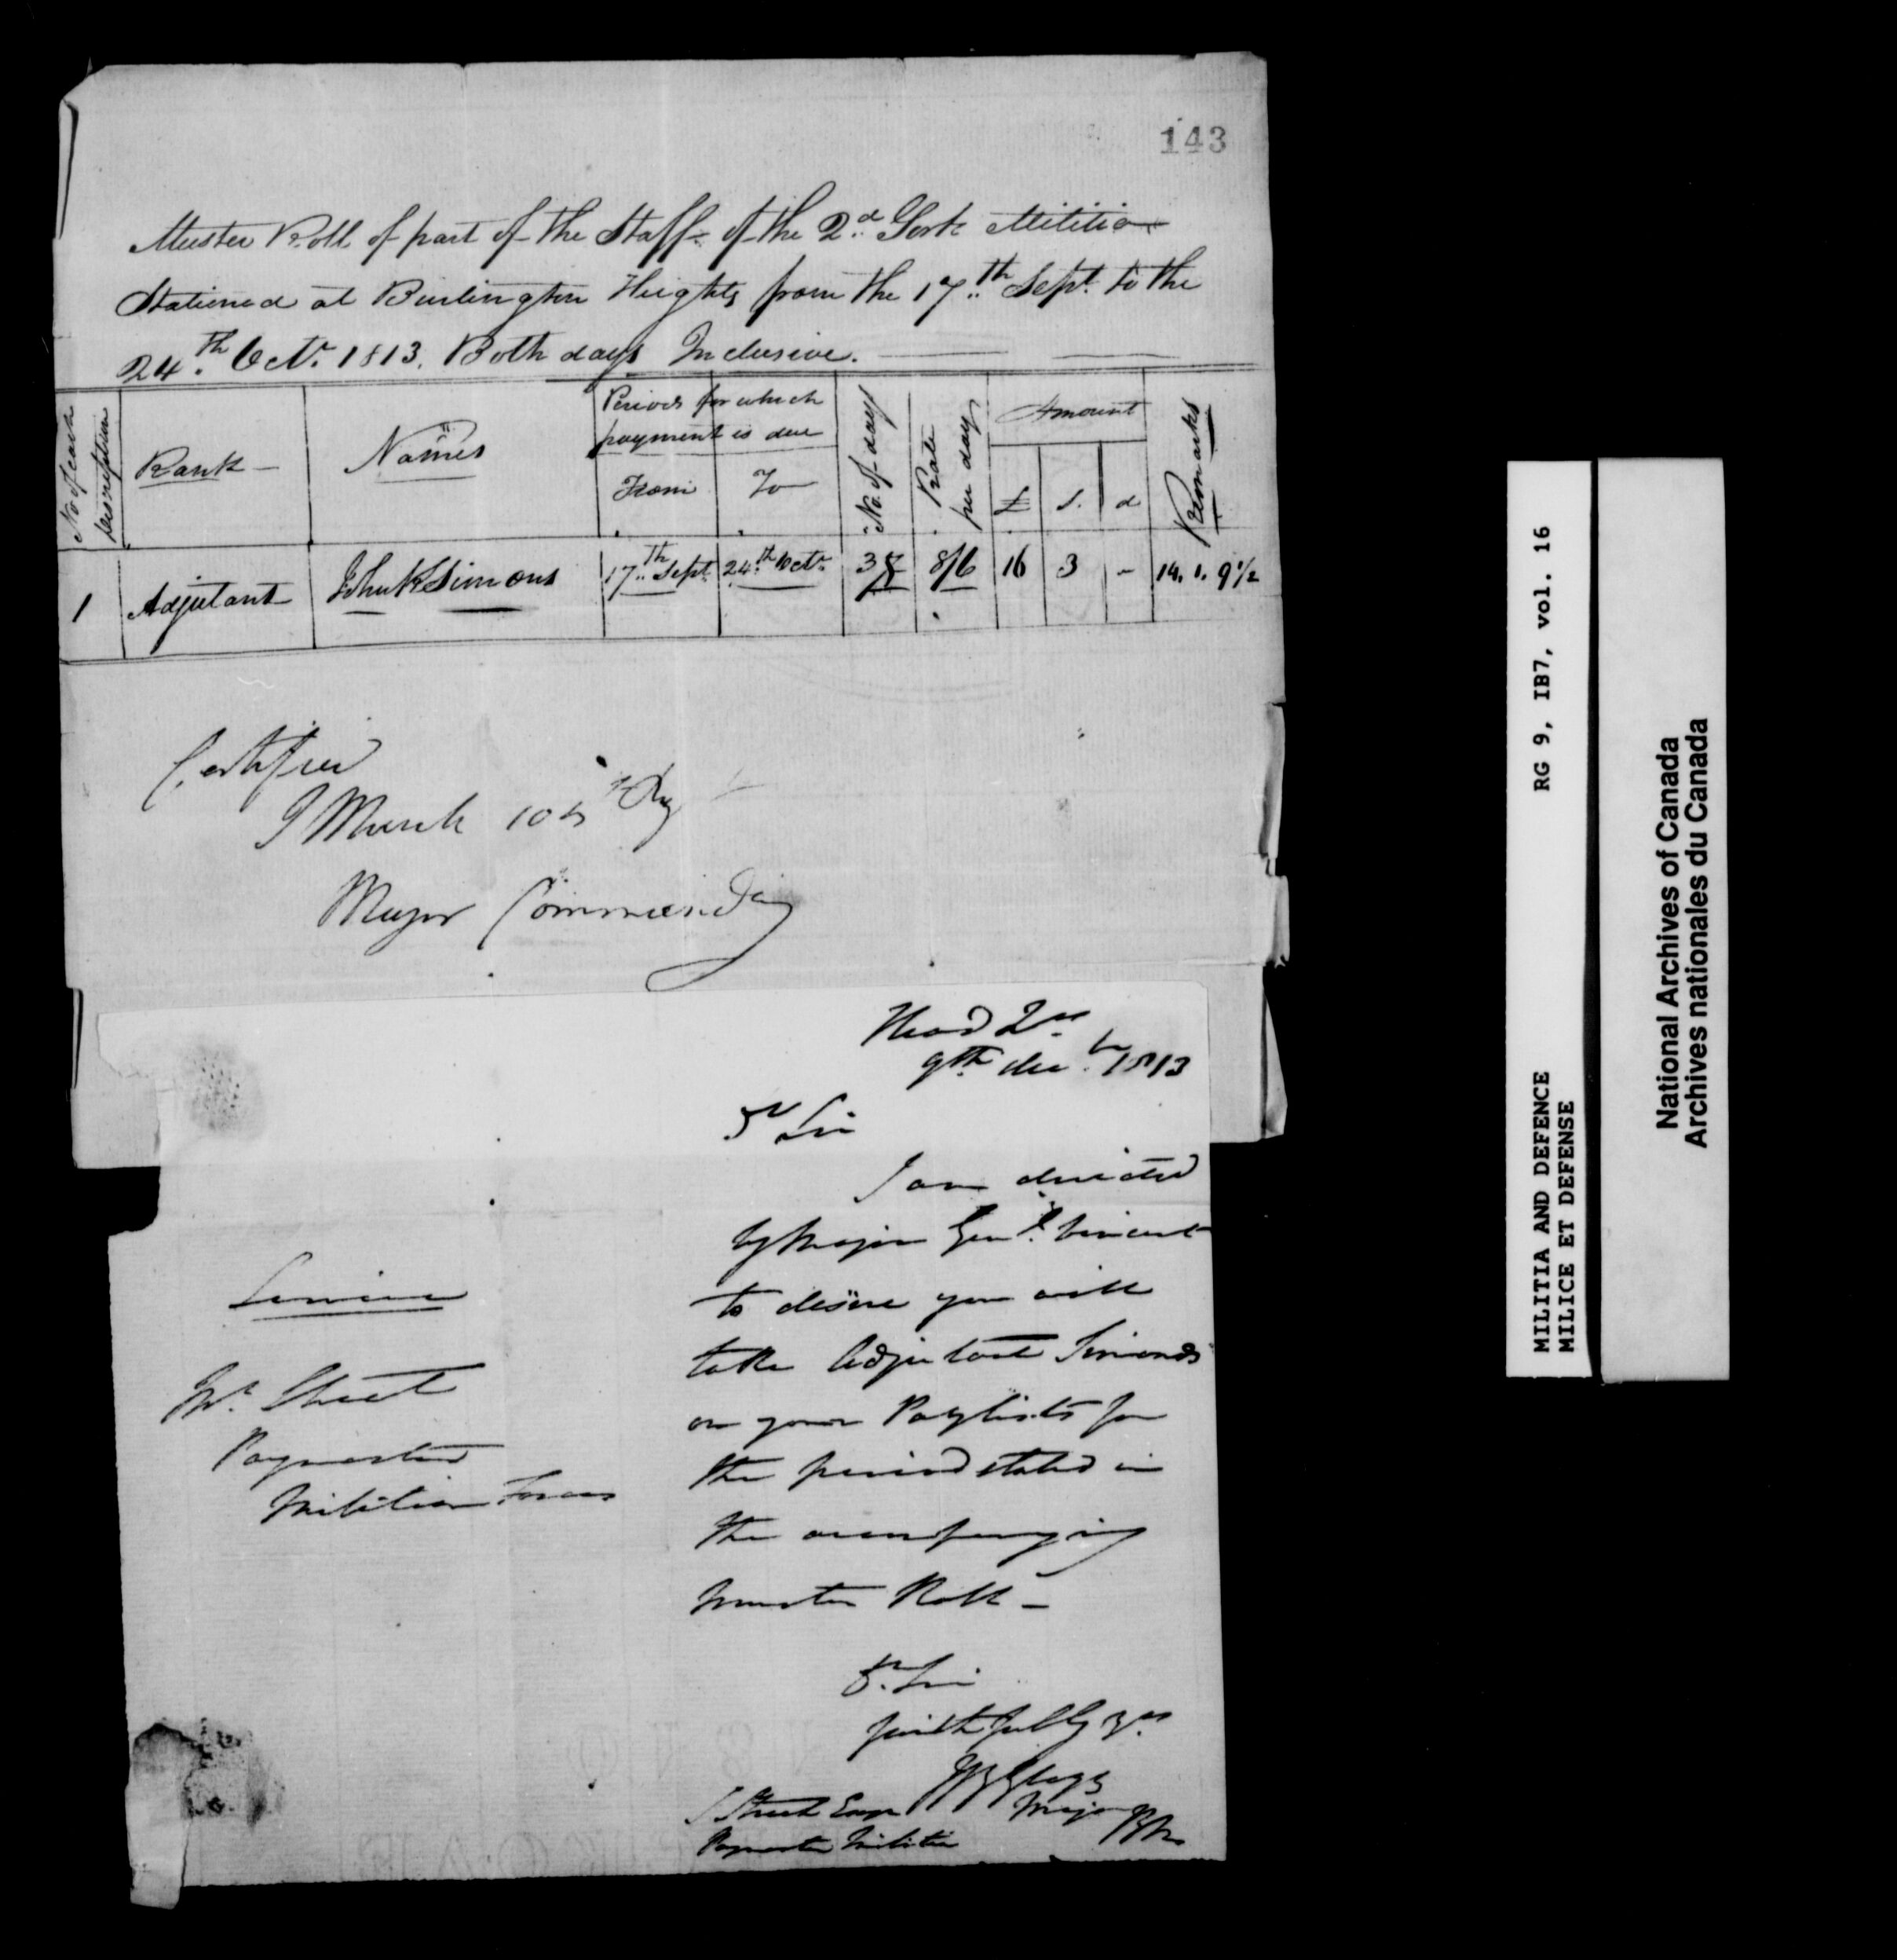 143
Muster Roll of part of the Staff of the 2.d York Militia
Stationed at Burlington Heights from the 17.th Sept. to the
24.th Oct.r 1813. Both days Inclusive.
No. of each description
Rank
Names
Periods for which payment is due
From
To
No. of days
Rate per day
Amount
£
s.
d
Remarks
1 Adjutant John K Simons 17.th Sept 24.th Octr 38 8/6 16 3 - 14. 1. 9 1/2
Certified
Major Commanding
Head Qrs
9th decbr 1813
Sir
I am directed
by Major Genl. Vincent
to desire you will
take Adjutant Simons
on your Paylists for
the period stated in
the accompanying
Muster Roll -
Service
Mr. Street
Paymaster
Militia Forces
Sir
faithfully yrs
J B Glegg
Major
S Street Esqr
Paymaster Militia
MILITIA AND DEFENCE RG 9, IB7, vol. 16
MILICE ET DEFENSE
National Archives of Canada
Archives nationales du Canada